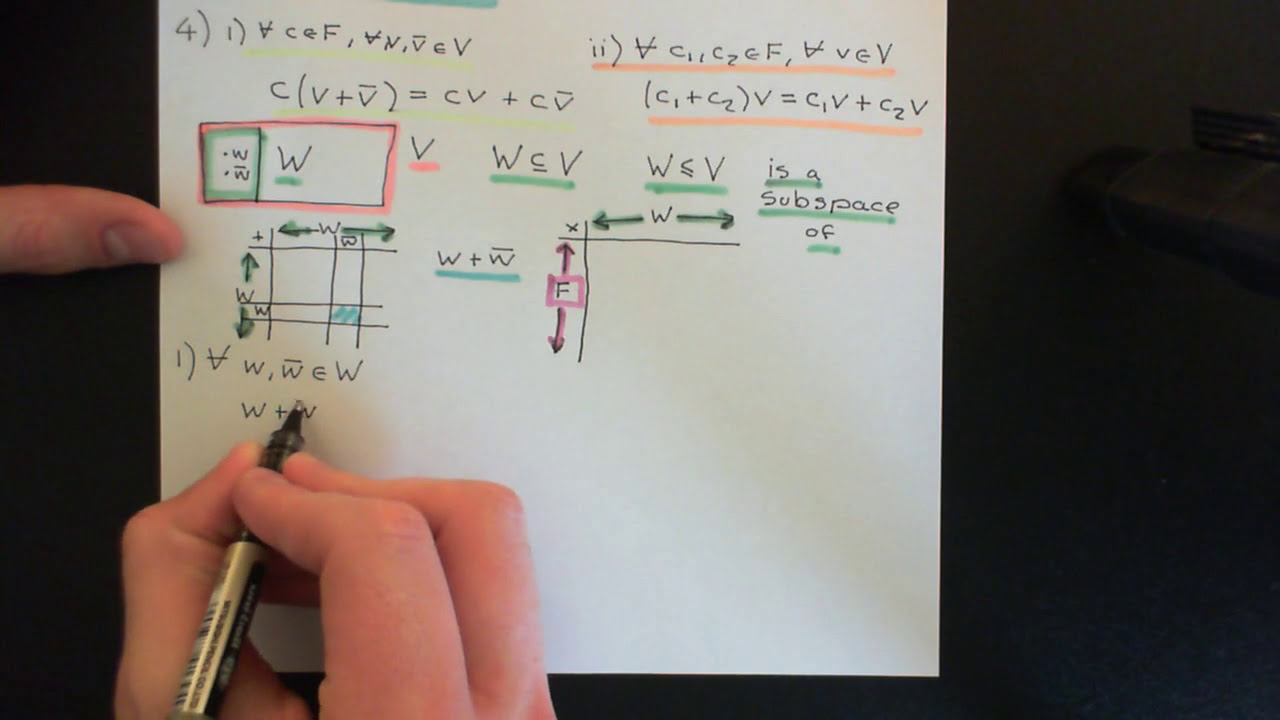 4) i) ∀ c∈F, ∀v, v̄ ∈ V
c(v+v̄) = cv + cv̄
ii) ∀ c₁, c₂ ∈ F, ∀ v∈V
(c₁+c₂)v = c₁v + c₂v
·w
·w̄
W
V
W ⊆ V
W ⩽ V
is a
subspace
of
+
W
w̄
W
w
w + w̄
×
W
F
1) ∀ w, w̄ ∈ W
w + w